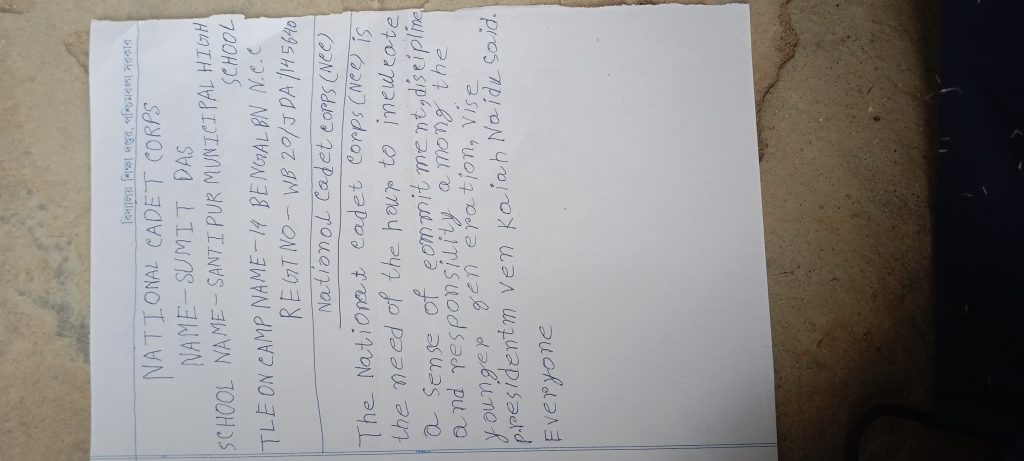 বিদ্যালয় শিক্ষা দপ্তর, পশ্চিমবঙ্গ সরকার
NATIONAL CADET CORPS
NAME-SUMIT DAS
SCHOOL NAME-SANTIPUR MUNICIPAL HIGH
SCHOOL
TLE ON CAMP NAME-19 BENGAL BN N.C.C
REGT NO-WB 20/JDA/145640
National Cadet Corps (NCC)
The National cadet corps (NCC) is
the need of the hour to inculcate
a sense of commitment, discipline
and responsility among the
younger gen eration, vise
president m ven kaiah Naidu said.
Everyone